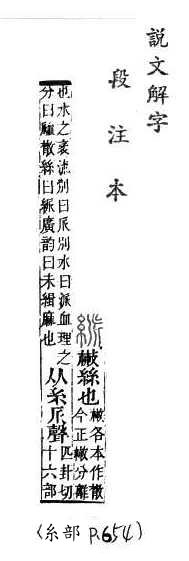 說文解字
段注本
𥿯
㪔絲也
㪔各本作散
今正㪔分離
也水之衺流別曰𠂢別水曰派血理之
分曰䘑散絲曰𥿯廣韵曰未緝麻也
从糸𠂢聲
匹卦切
十六部
(糸部 P.654)